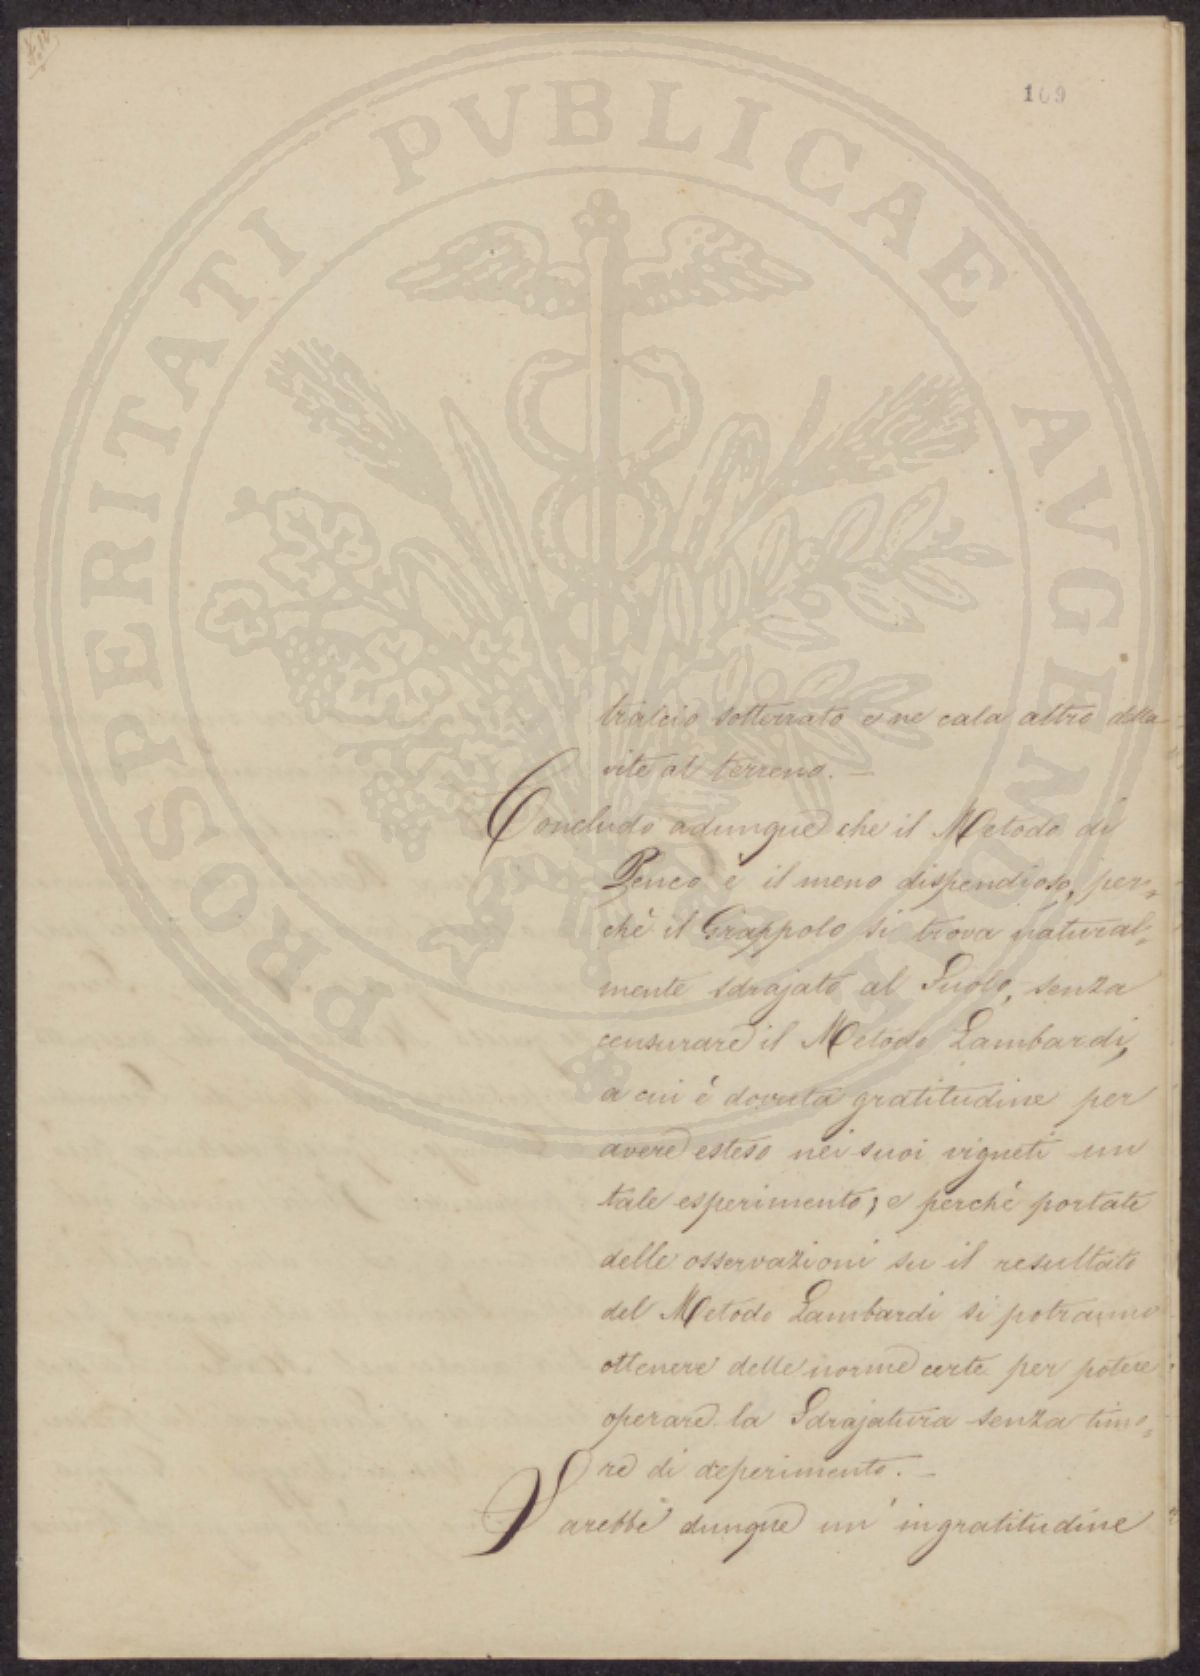 109
PROSPERITATI PVBLICAE AVGENDAE
tralcio sotterrato e ne cala altro della
vite al terreno. —
Concludo adunque che il Metodo di
Penco è il meno dispendioso, per=
chè il Grappolo si trova natural=
mente sdrajato al Suolo, senza
censurare il Metodo Lambardi,
a cui è dovuta gratitudine per
avere esteso nei suoi vigneti un
tale esperimento; e perchè portate
delle osservazioni su il resultato
del Metodo Lambardi si potranno
ottenere delle norme certe per potere
operare la Sdrajatura senza timo=
re di deperimento. —
Sarebbe dunque un' ingratitudine